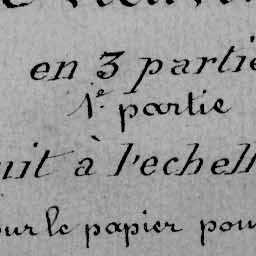 en 3 partie
1e. partie
uit à l'echell
our le papier pou